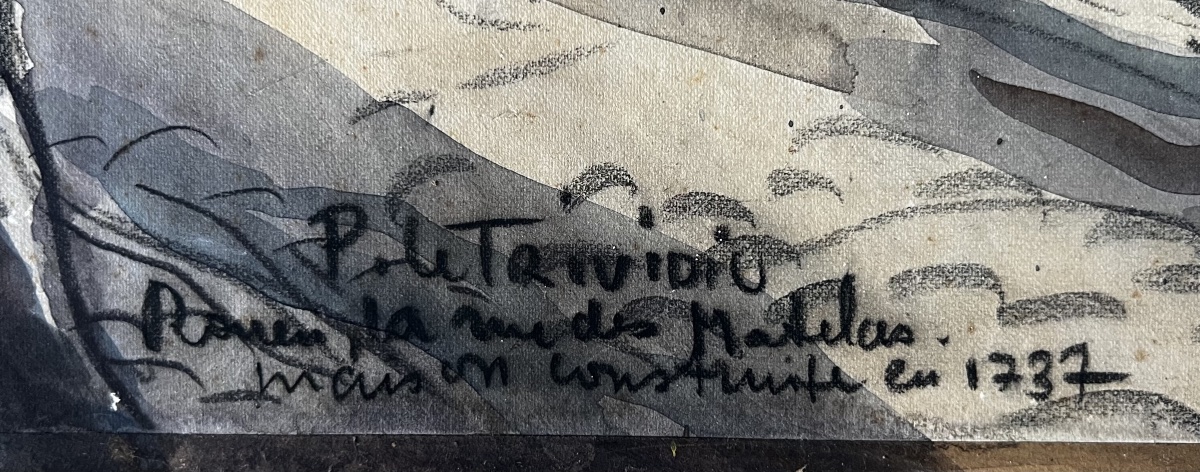 Pole Trividic
Rouen, la rue des Matelas.
maison construite en 1737